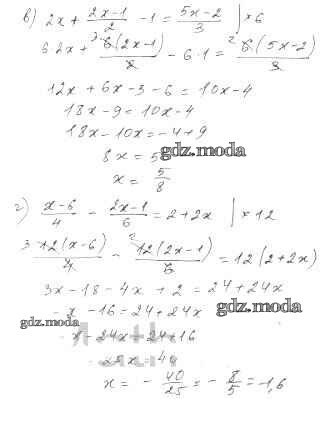 в) 2x + (2x-1)/2 - 1 = (5x-2)/3 | ×6
6·2x + ³6(2x-1)/2 - 6·1 = ²6(5x-2)/3
12x + 6x - 3 - 6 = 10x - 4
18x - 9 = 10x - 4
18x - 10x = -4 + 9
8x = 5
gdz.moda
x = 5/8
г) (x-6)/4 - (2x-1)/6 = 2 + 2x | ×12
³12(x-6)/4 - ²12(2x-1)/6 = 12(2+2x)
3x - 18 - 4x + 2 = 24 + 24x
- x - 16 = 24 + 24x
gdz.moda
gdz.moda
- x - 24x = 24 + 16
- 25x = 40
x = - 40/25 = - 8/5 = -1,6